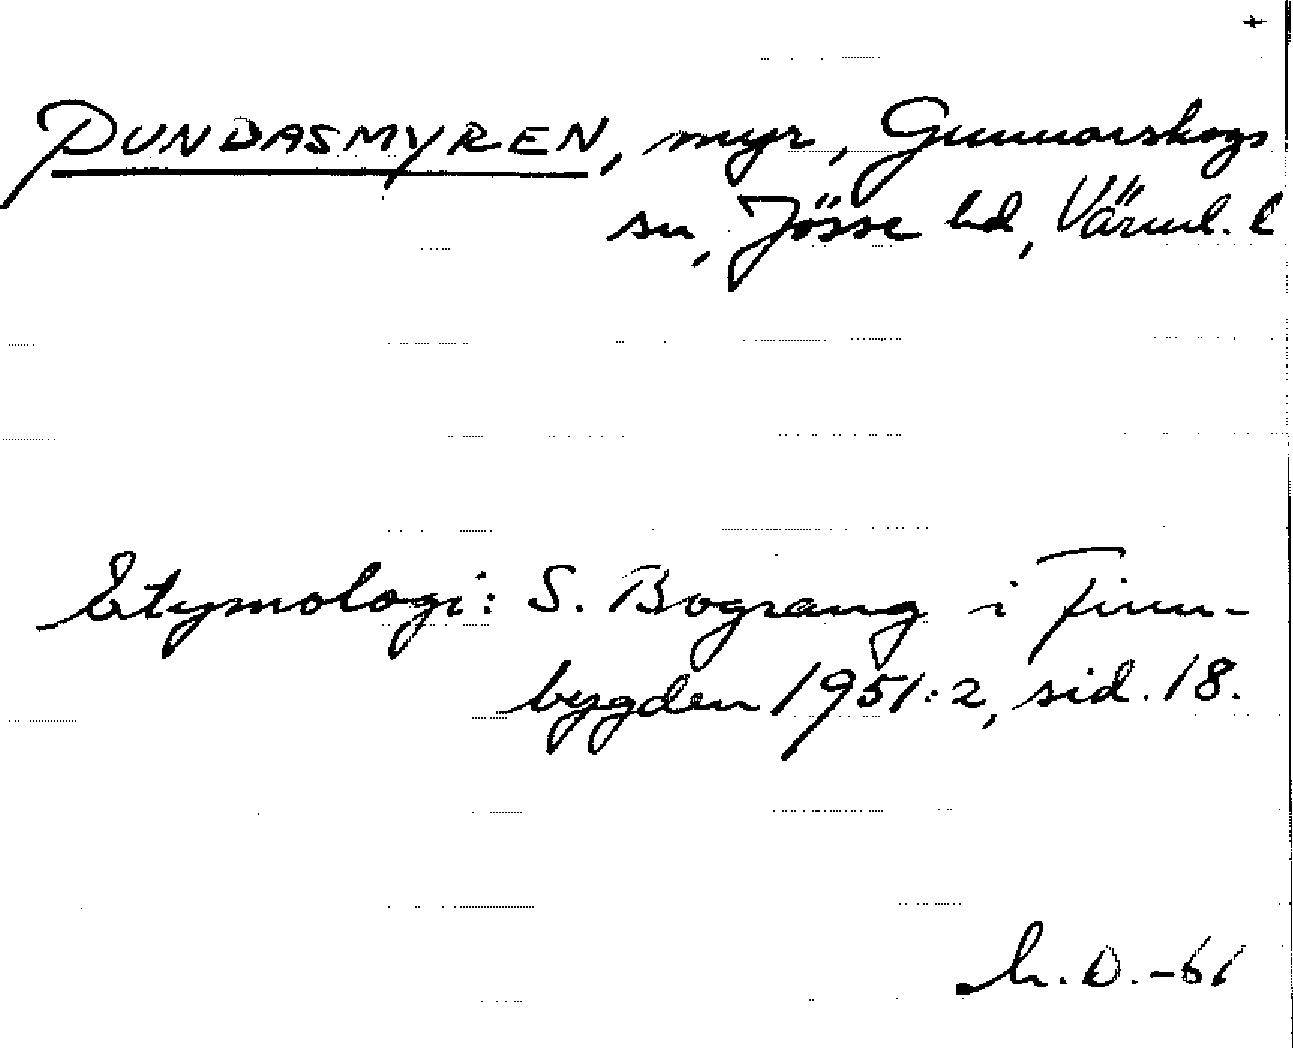 +
PUNDASMYREN, myr, Gunnarskogs
sn, Jösse hd, Värml. l
Etymologi: S. Bograng i Finn-
bygden 1951:2, sid. 18.
h. D. -61